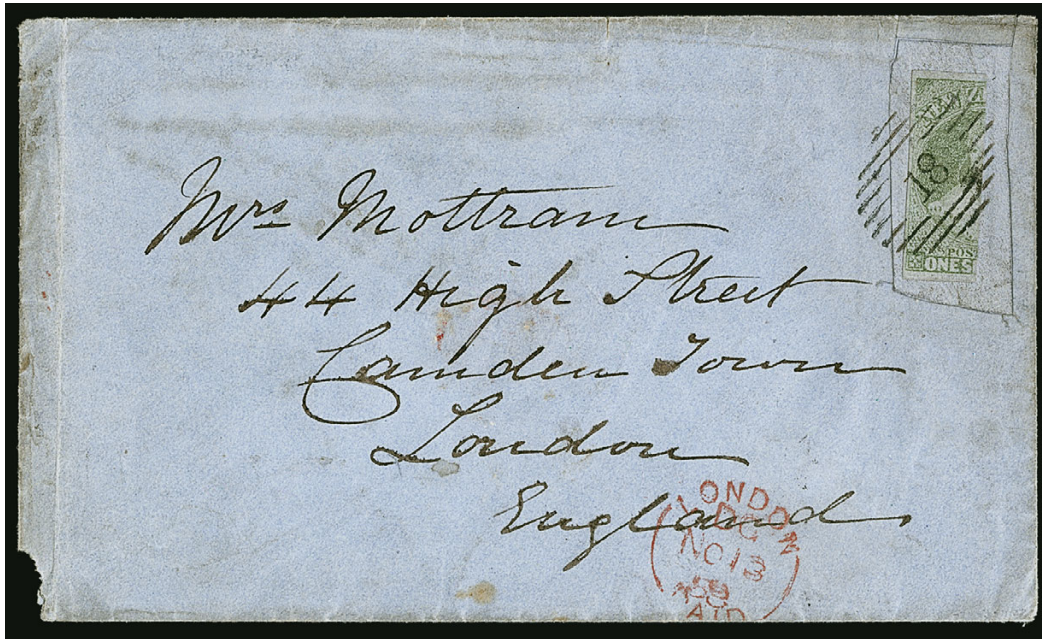 18
NPOS
ONES
Mrs Mottram
44 High Street
Camden Town
London
England
LONDON
NO 13